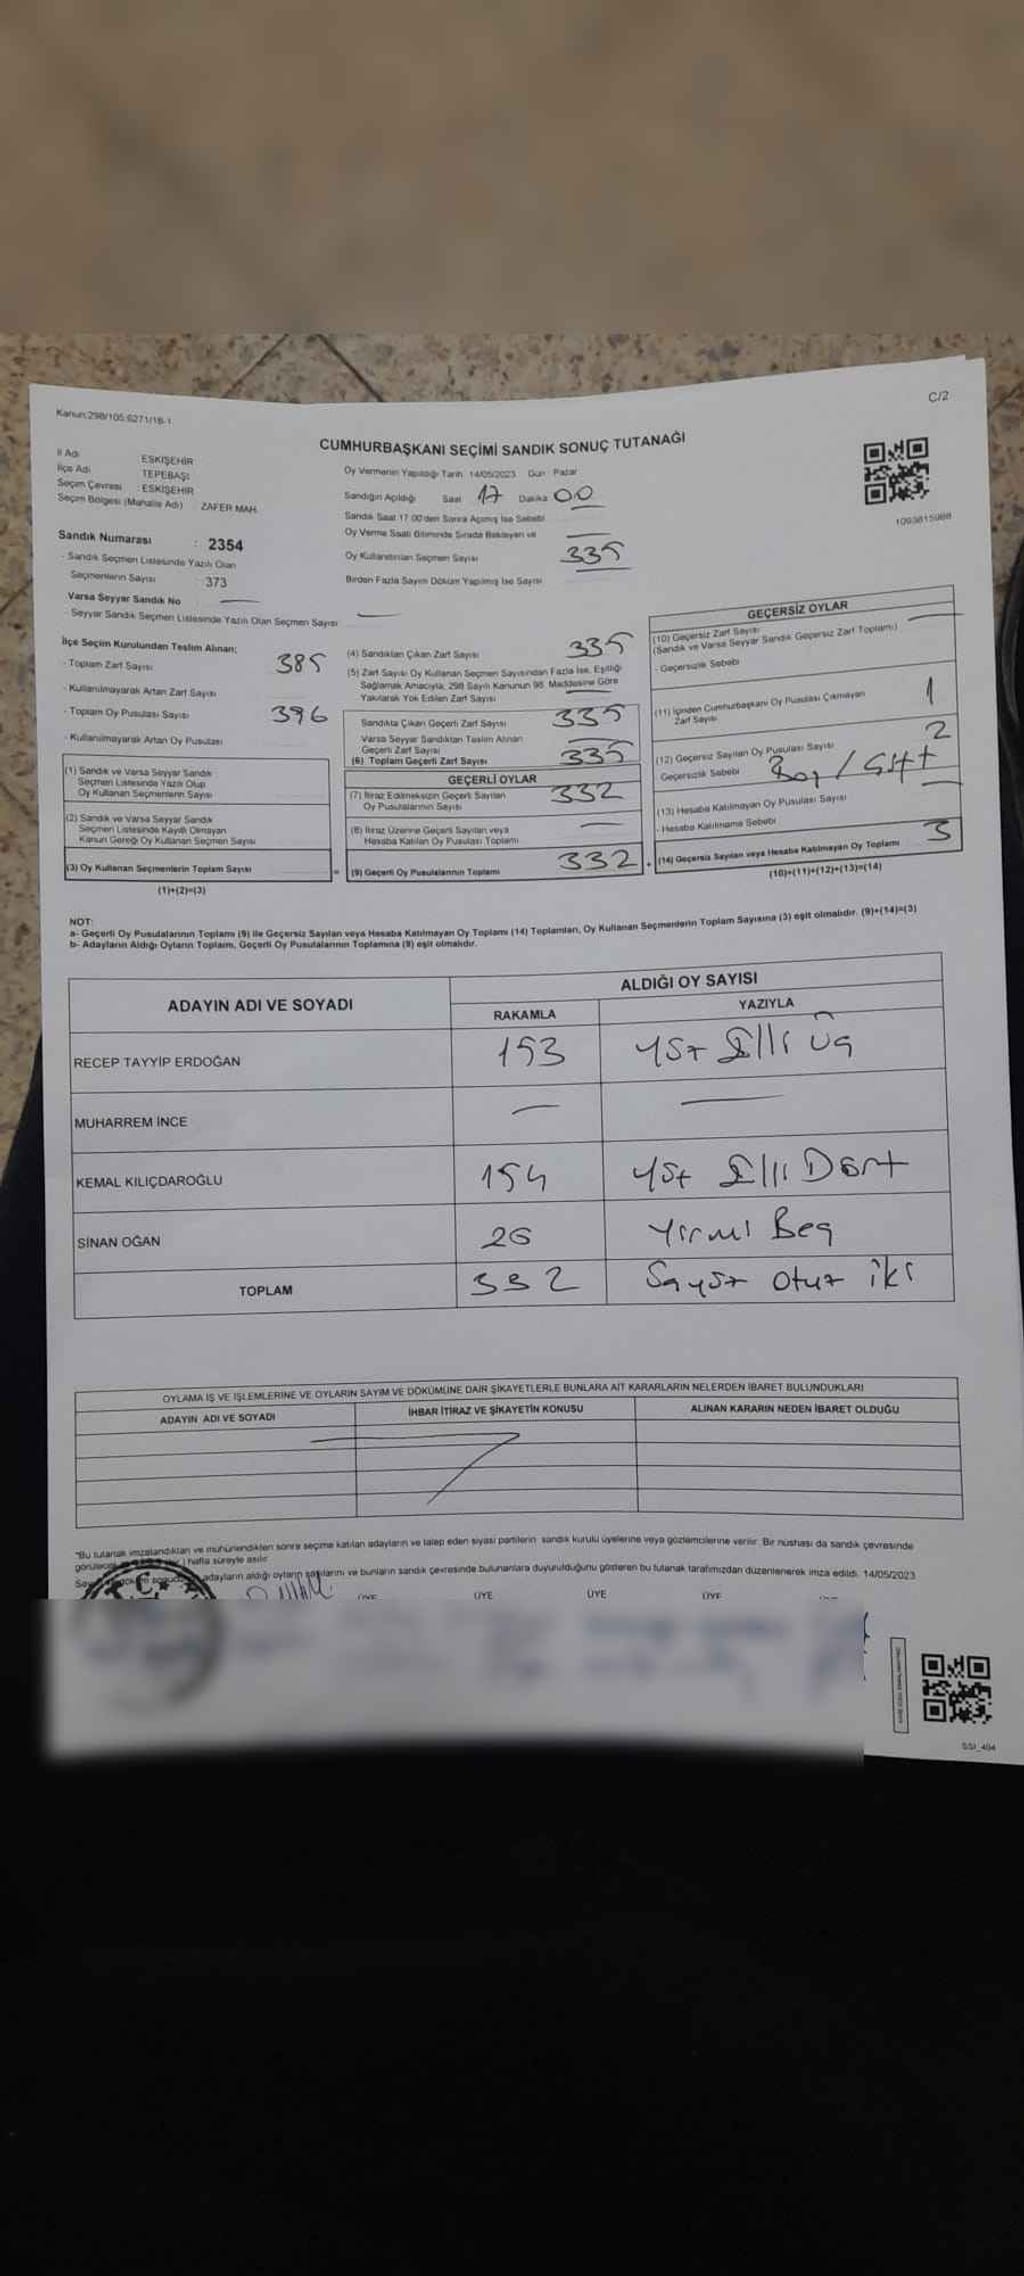 Kanun:298/105;6271/18-1
C/2
CUMHURBAŞKANI SEÇİMİ SANDIK SONUÇ TUTANAĞI
İl Adı ESKİŞEHİR
İlçe Adı TEPEBAŞI
Seçim Çevresi : ESKİŞEHİR
Seçim Bölgesi (Mahalle Adı) ZAFER MAH.
Sandık Numarası : 2354
- Sandık Seçmen Listesinde Yazılı Olan
Seçmenlerin Sayısı : 373
Varsa Seyyar Sandık No
- Seyyar Sandık Seçmen Listesinde Yazılı Olan Seçmen Sayısı
Oy Vermenin Yapıldığı Tarih 14/05/2023 Gün : Pazar
Sandığın Açıldığı Saat 17 Dakika 00
Sandık Saat 17:00'den Sonra Açılmış İse Sebebi
Oy Verme Saati Bitiminde Sırada Bekleyen ve
Oy Kullandırılan Seçmen Sayısı 335
Birden Fazla Sayım Döküm Yapılmış İse Sayısı
1093815988
İlçe Seçim Kurulundan Teslim Alınan;
- Toplam Zarf Sayısı 385
- Kullanılmayarak Artan Zarf Sayısı
- Toplam Oy Pusulası Sayısı 396
- Kullanılmayarak Artan Oy Pusulası
(1) Sandık ve Varsa Seyyar Sandık
Seçmen Listesinde Yazılı Olup
Oy Kullanan Seçmenlerin Sayısı
(2) Sandık ve Varsa Seyyar Sandık
Seçmen Listesinde Kayıtlı Olmayan
Kanun Gereği Oy Kullanan Seçmen Sayısı
(3) Oy Kullanan Seçmenlerin Toplam Sayısı =
(1)+(2)=(3)
(4) Sandıktan Çıkan Zarf Sayısı 335
(5) Zarf Sayısı Oy Kullanan Seçmen Sayısından Fazla İse, Eşitliği
Sağlamak Amacıyla, 298 Sayılı Kanunun 98. Maddesine Göre
Yakılarak Yok Edilen Zarf Sayısı
Sandıkta Çıkan Geçerli Zarf Sayısı 335
Varsa Seyyar Sandıktan Teslim Alınan
Geçerli Zarf Sayısı
(6) Toplam Geçerli Zarf Sayısı 335
GEÇERLİ OYLAR
(7) İtiraz Edilmeksizin Geçerli Sayılan
Oy Pusulalarının Sayısı 332
(8) İtiraz Üzerine Geçerli Sayılan veya
Hesaba Katılan Oy Pusulası Toplamı
(9) Geçerli Oy Pusulalarının Toplamı 332 +
GEÇERSİZ OYLAR
(10) Geçersiz Zarf Sayısı
(Sandık ve Varsa Seyyar Sandık Geçersiz Zarf Toplamı)
- Geçersizlik Sebebi
(11) İçinden Cumhurbaşkanı Oy Pusulası Çıkmayan
Zarf Sayısı 1
(12) Geçersiz Sayılan Oy Pusulası Sayısı 2
Geçersizlik Sebebi Boş / Çift
(13) Hesaba Katılmayan Oy Pusulası Sayısı
- Hesaba Katılmama Sebebi
(14) Geçersiz Sayılan veya Hesaba Katılmayan Oy Toplamı 3
(10)+(11)+(12)+(13)=(14)
NOT:
a- Geçerli Oy Pusulalarının Toplamı (9) ile Geçersiz Sayılan veya Hesaba Katılmayan Oy Toplamı (14) Toplamları, Oy Kullanan Seçmenlerin Toplam Sayısına (3) eşit olmalıdır. (9)+(14)=(3)
b- Adayların Aldığı Oyların Toplamı, Geçerli Oy Pusulalarının Toplamına (9) eşit olmalıdır.
ADAYIN ADI VE SOYADI
ALDIĞI OY SAYISI
RAKAMLA YAZIYLA
RECEP TAYYİP ERDOĞAN 153 Yüz Elli Üç
MUHARREM İNCE
KEMAL KILIÇDAROĞLU 154 Yüz Elli Dört
SİNAN OĞAN 25 Yirmi Beş
TOPLAM 332 otuz iki
OYLAMA İŞ VE İŞLEMLERİNE VE OYLARIN SAYIM VE DÖKÜMÜNE DAİR ŞİKAYETLERLE BUNLARA AİT KARARLARIN NELERDEN İBARET BULUNDUKLARI
ADAYIN ADI VE SOYADI İHBAR İTİRAZ VE ŞİKAYETİN KONUSU ALINAN KARARIN NEDEN İBARET OLDUĞU
"Bu tutanak imzalandıktan ve mühürlendikten sonra seçime katılan adayların ve talep eden siyasi partilerin sandık kurulu üyelerine veya gözlemcilerine verilir. Bir nüshası da sandık çevresinde
hafta süreyle asılır.
adayların aldığı oyların sayılarını ve bunların sandık çevresinde bulunanlara duyurulduğunu gösteren bu tutanak tarafımızdan düzenlenerek imza edildi. 14/05/2023
T.C.
ÜYE ÜYE ÜYE ÜYE
SSI_404